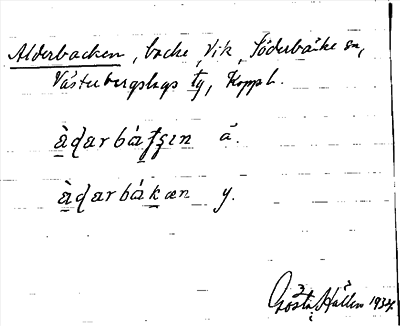 Alderbacken, backe, Vik, Söderbärke sn,
Västerbergslags tg, Koppb l.
àḍarbá̱ʃʂın ä.
àḍarbáḵæn y.
Gösta Hallen 1934